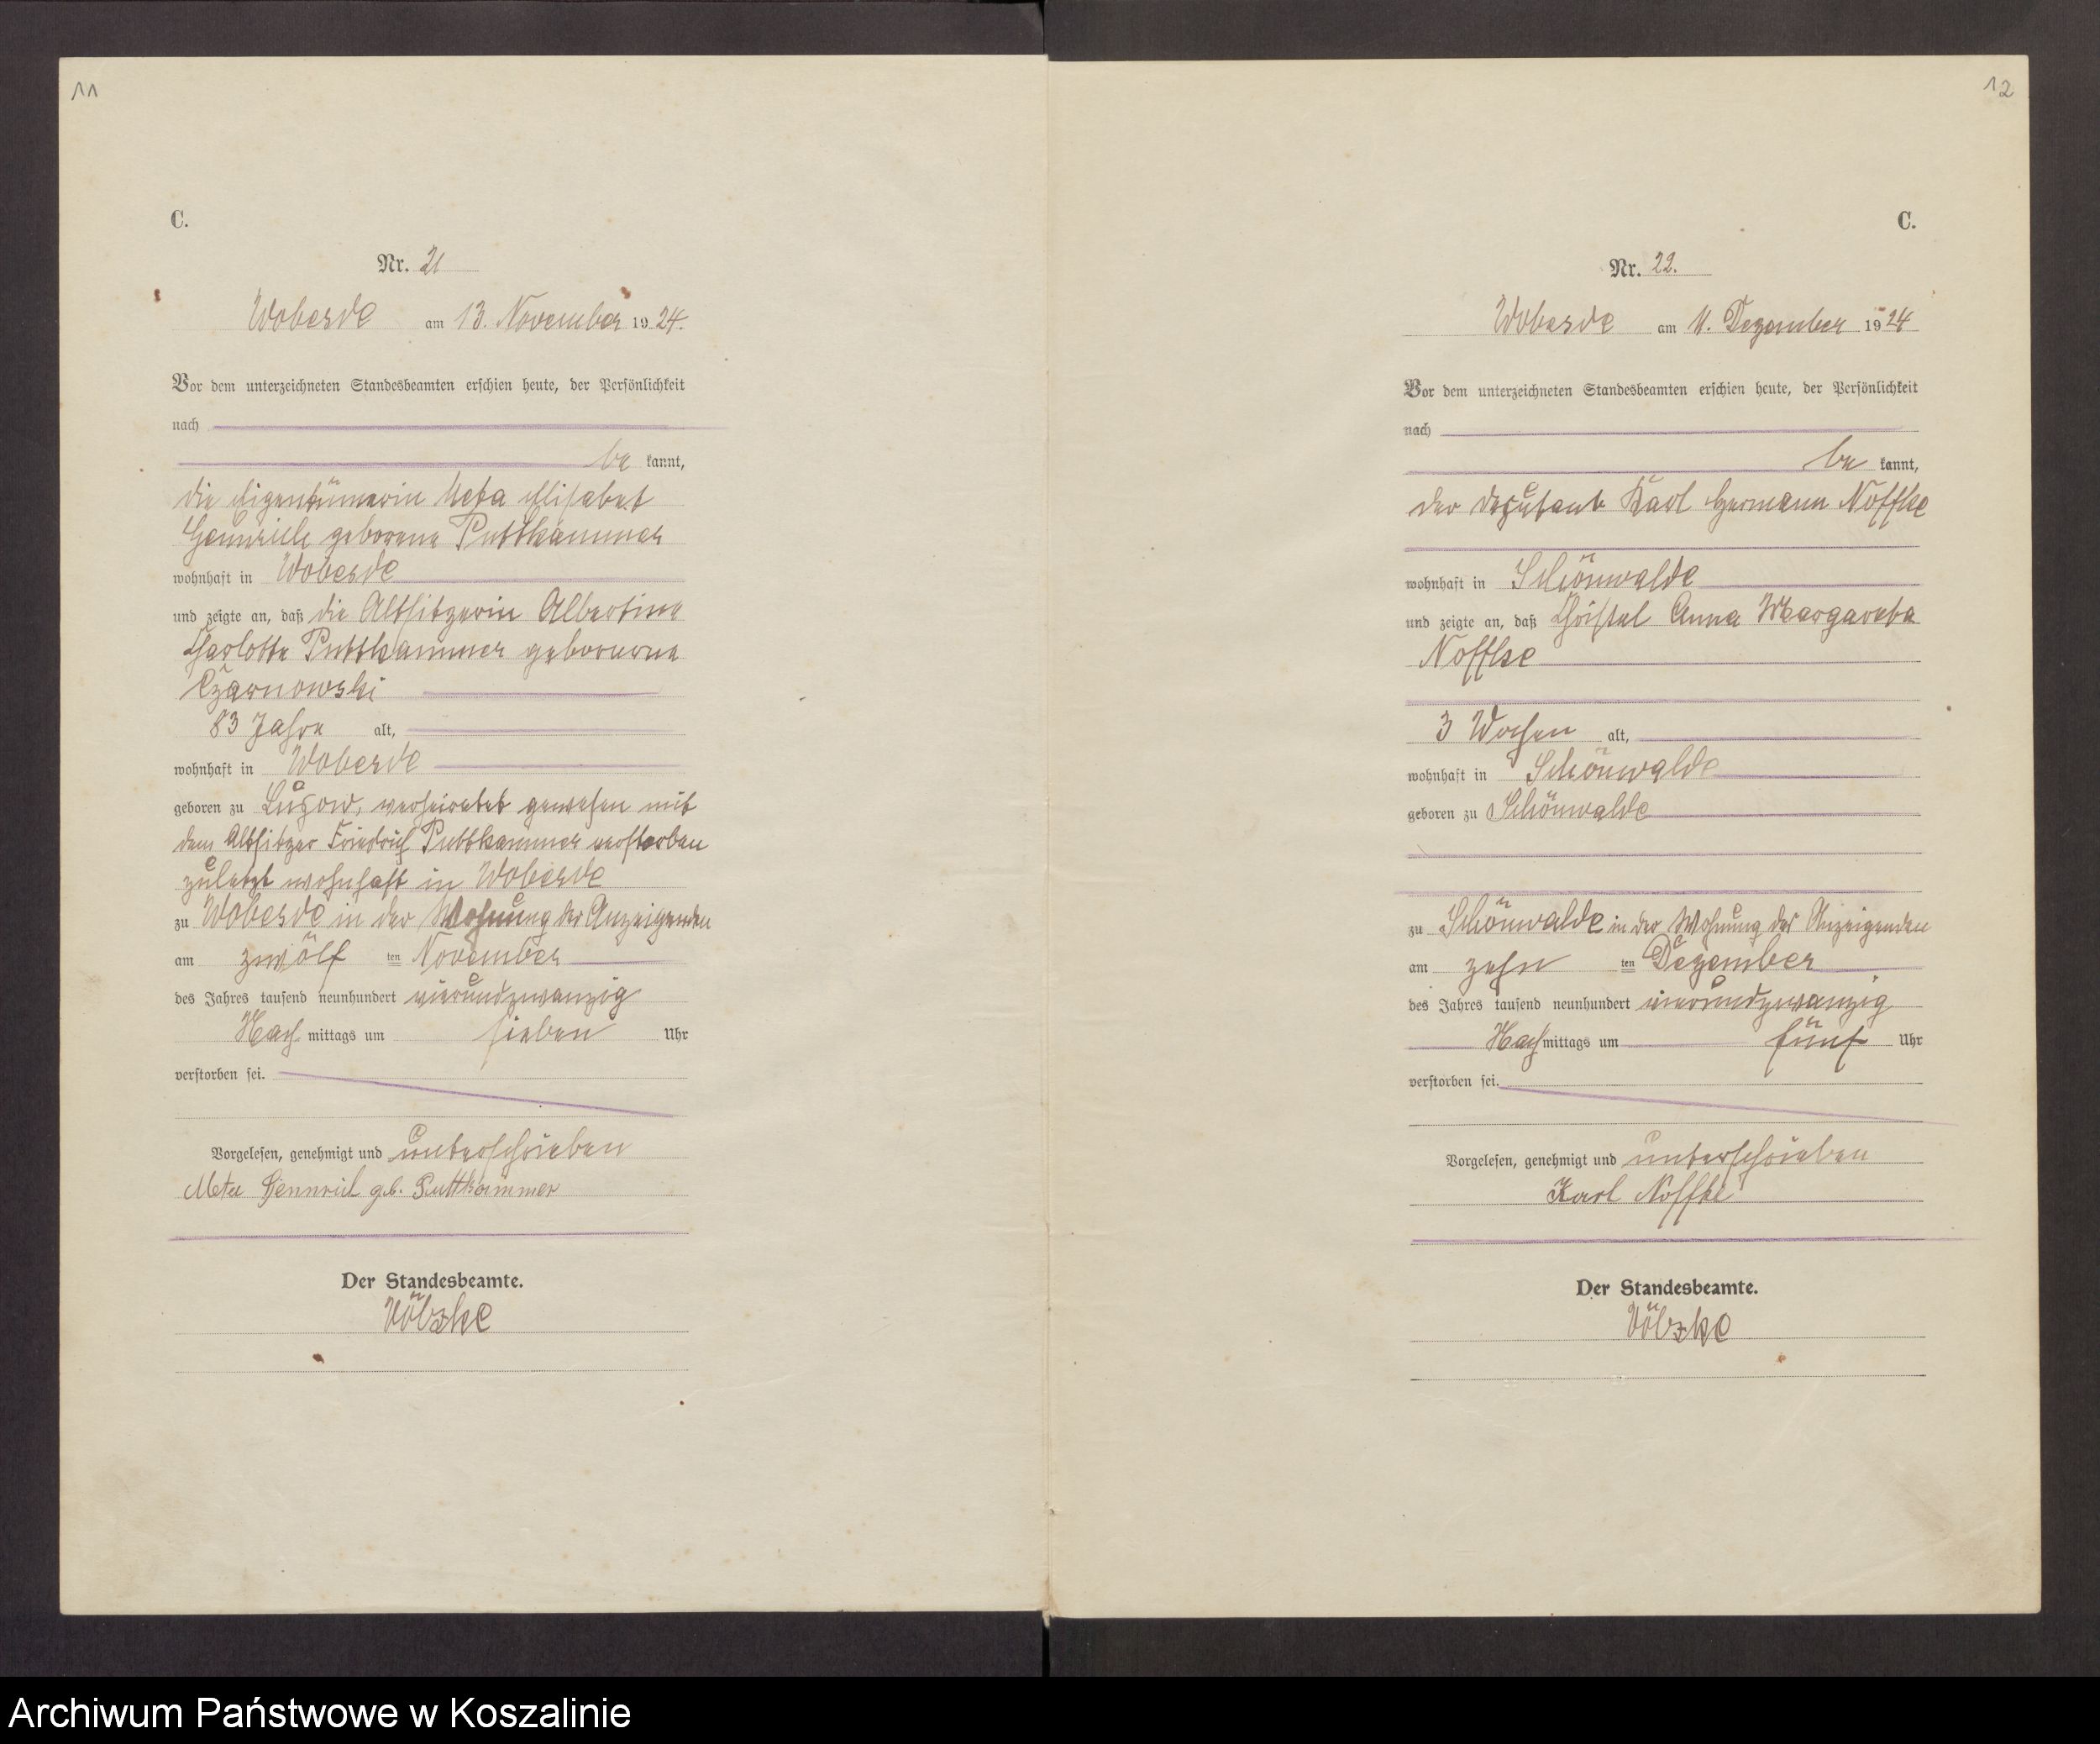 11
C.
Nr. 21
Wobesde am 13. November 1924.
Vor dem unterzeichneten Standesbeamten erschien heute, der Persönlichkeit
nach
be kannt,
die Eigentümerin Meta Elisabet
geborene Puttkammer
wohnhaft in Wobesde
und zeigte an, daß die Altsitzerin Albertine
Charlotte Puttkammer geborerne
Czarnowski
83 Jahre alt,
wohnhaft in Wobesde
geboren zu Lupow, verheiratet gewesen mit
dem Altsitzer Friedrich Puttkammer verstorben
zuletzt wohnhaft in Wobesde
zu Wobesde in der Wohnung der Anzeigenden
am zwölf ten November
des Jahres tausend neunhundert vierundzwanzig
Nach mittags um sieben Uhr
verstorben sei.
Vorgelesen, genehmigt und unterschrieben
Meta Hennrich geb. Puttkammer
Der Standesbeamte.
Völzke
12
C.
Nr. 22.
Wobesde am 11. Dezember 1924
Vor dem unterzeichneten Standesbeamten erschien heute, der Persönlichkeit
nach
be kannt,
der Deputant Karl Hermann Noffke
wohnhaft in Schönwalde
und zeigte an, daß Christel Anna Margareta
Noffke
3 Wochen alt,
wohnhaft in Schönwalde
geboren zu Schönwalde
zu Schönwalde in der Wohnung des Anzeigenden
am zehn ten Dezember
des Jahres tausend neunhundert vierundzwanzig
Nach mittags um fünf Uhr
verstorben sei.
Vorgelesen, genehmigt und unterschrieben
Karl Noffke
Der Standesbeamte.
Völzke
Archiwum Państwowe w Koszalinie